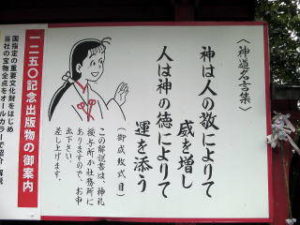 〈神道名言集〉
神は人の敬によりて
威を増し
人は神の徳によりて
運を添う
(御成敗式目)
この解説書は、神札
授与所か社務所に
ありますので、お申
出下さい。
差し上げます。
一二五〇記念出版物の御案内
国指定の重要文化財をはじめ
当社の宝物全点をオールカラーで紹介